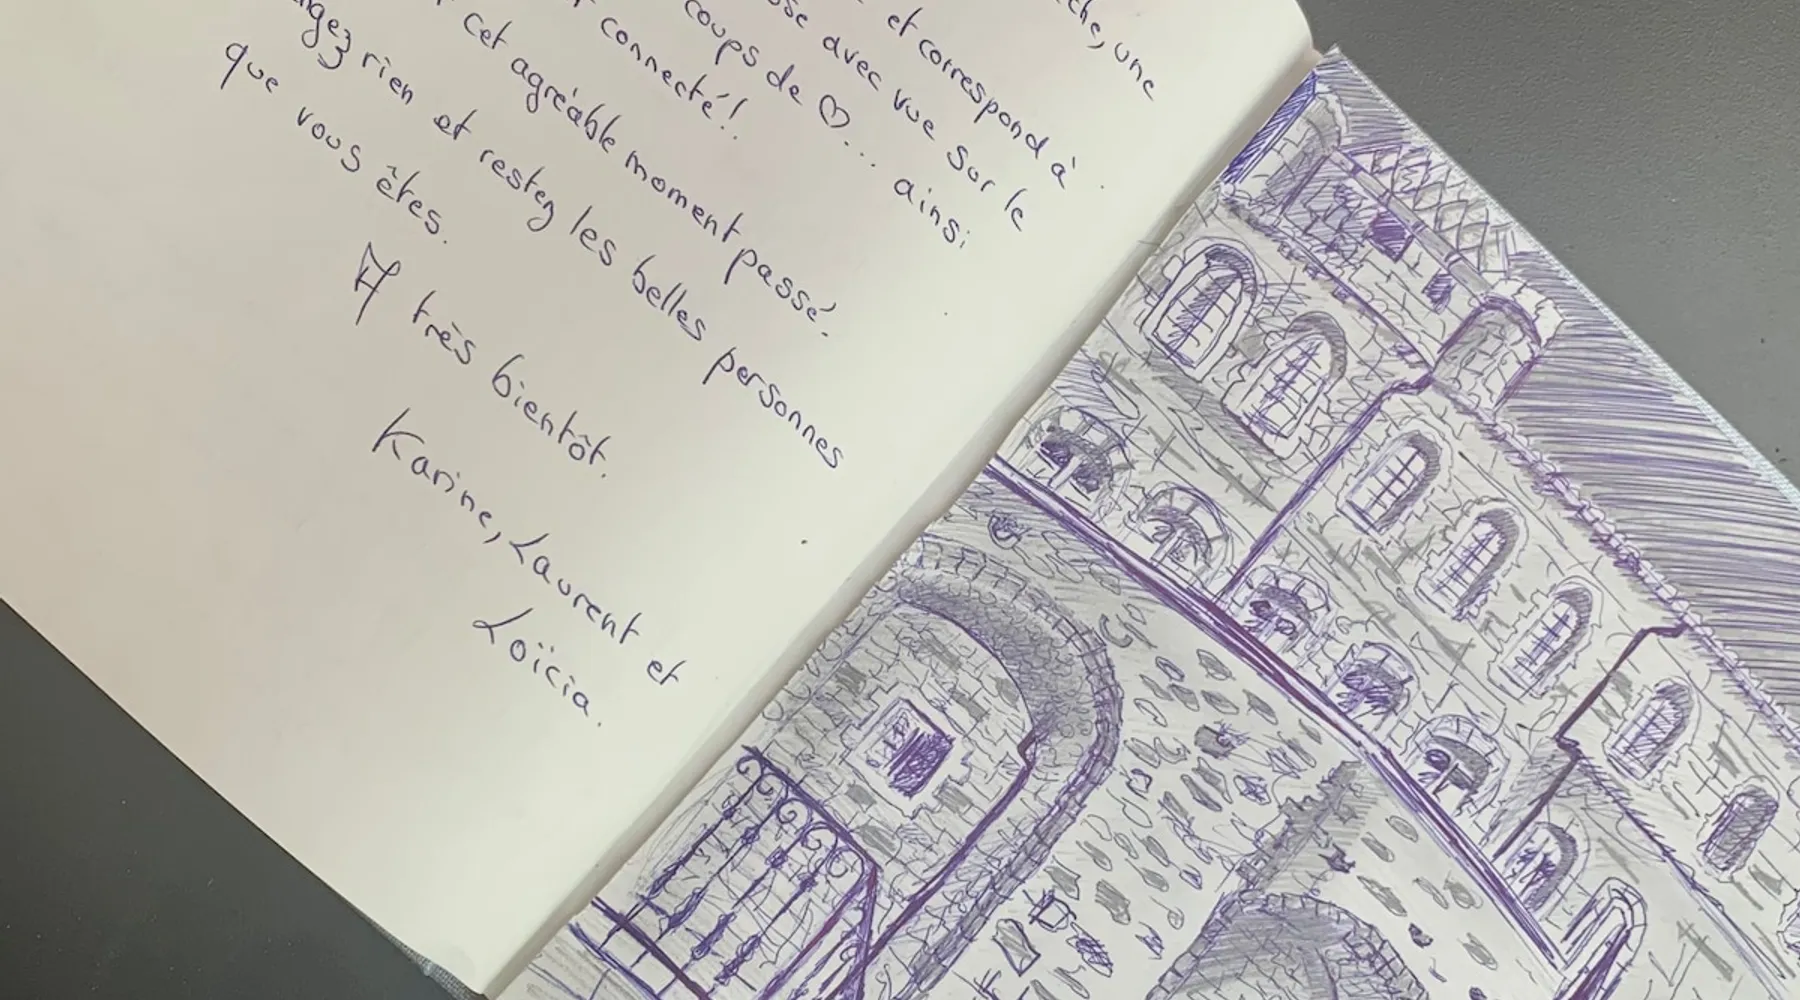 une
et correspond à
avec vue sur le
coups de ♡... ainsi
connecté!.
cet agréable moment passé.
rien et restez les belles personnes
que vous êtes.
A très bientôt.
Karine, Laurent et
Loïcia.